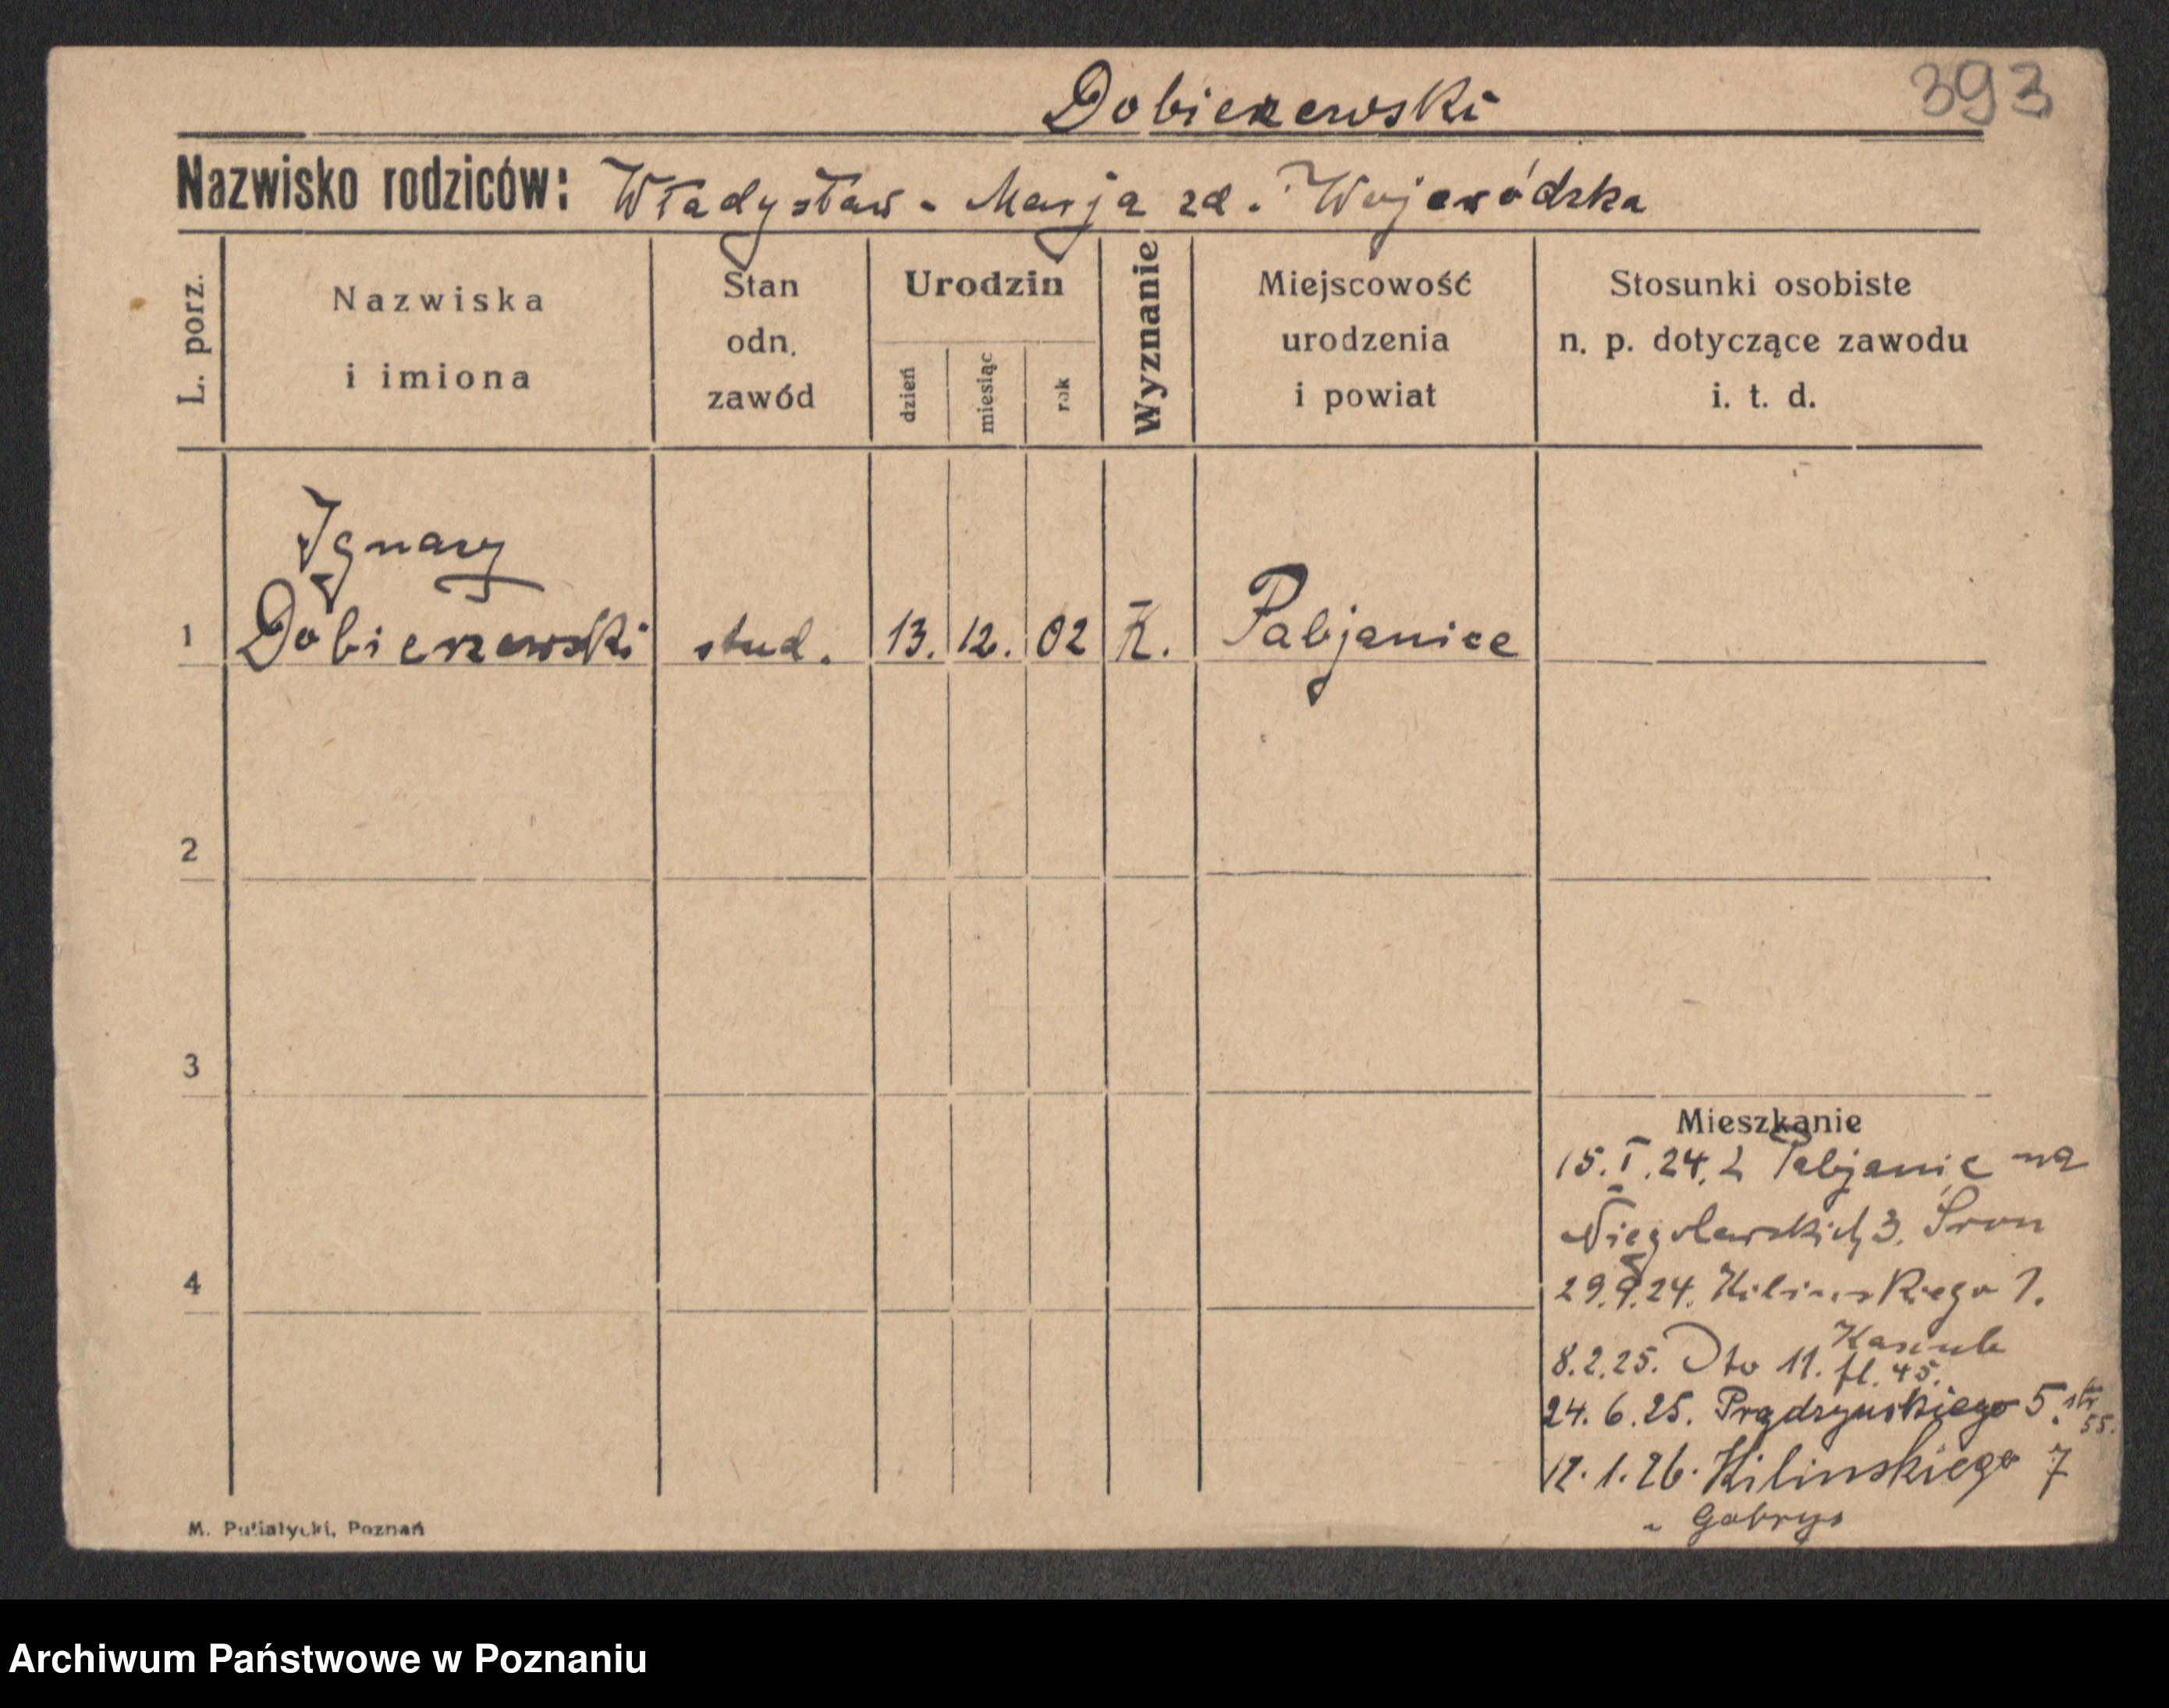 Dobieszewski
393
Nazwisko rodziców: Władysław - Marja zd. Wojewódzka
L. porz.
Nazwiska
i imiona
Stan
odn.
zawód
Urodzin
dzień
miesiąc
rok
Wyznanie
Miejscowość
urodzenia
i powiat
Stosunki osobiste
n. p. dotyczące zawodu
i. t. d.
Ignacy
1 Dobieszewski stud. 13. 12. 02 K. Pabjanice
2
3
Mieszkanie
15. I. 24. z Pabjanic na
Niegolewskich 3.
4
29.9.24. Kilinskiego 7.
8.2.25. Dto 11. fl. 45.
24. 6. 25. Prądzynskiego 5.
12. 1. 26. Kilinskiego 7
" Gabrys
M. Putiatycki, Poznań
Archiwum Państwowe w Poznaniu